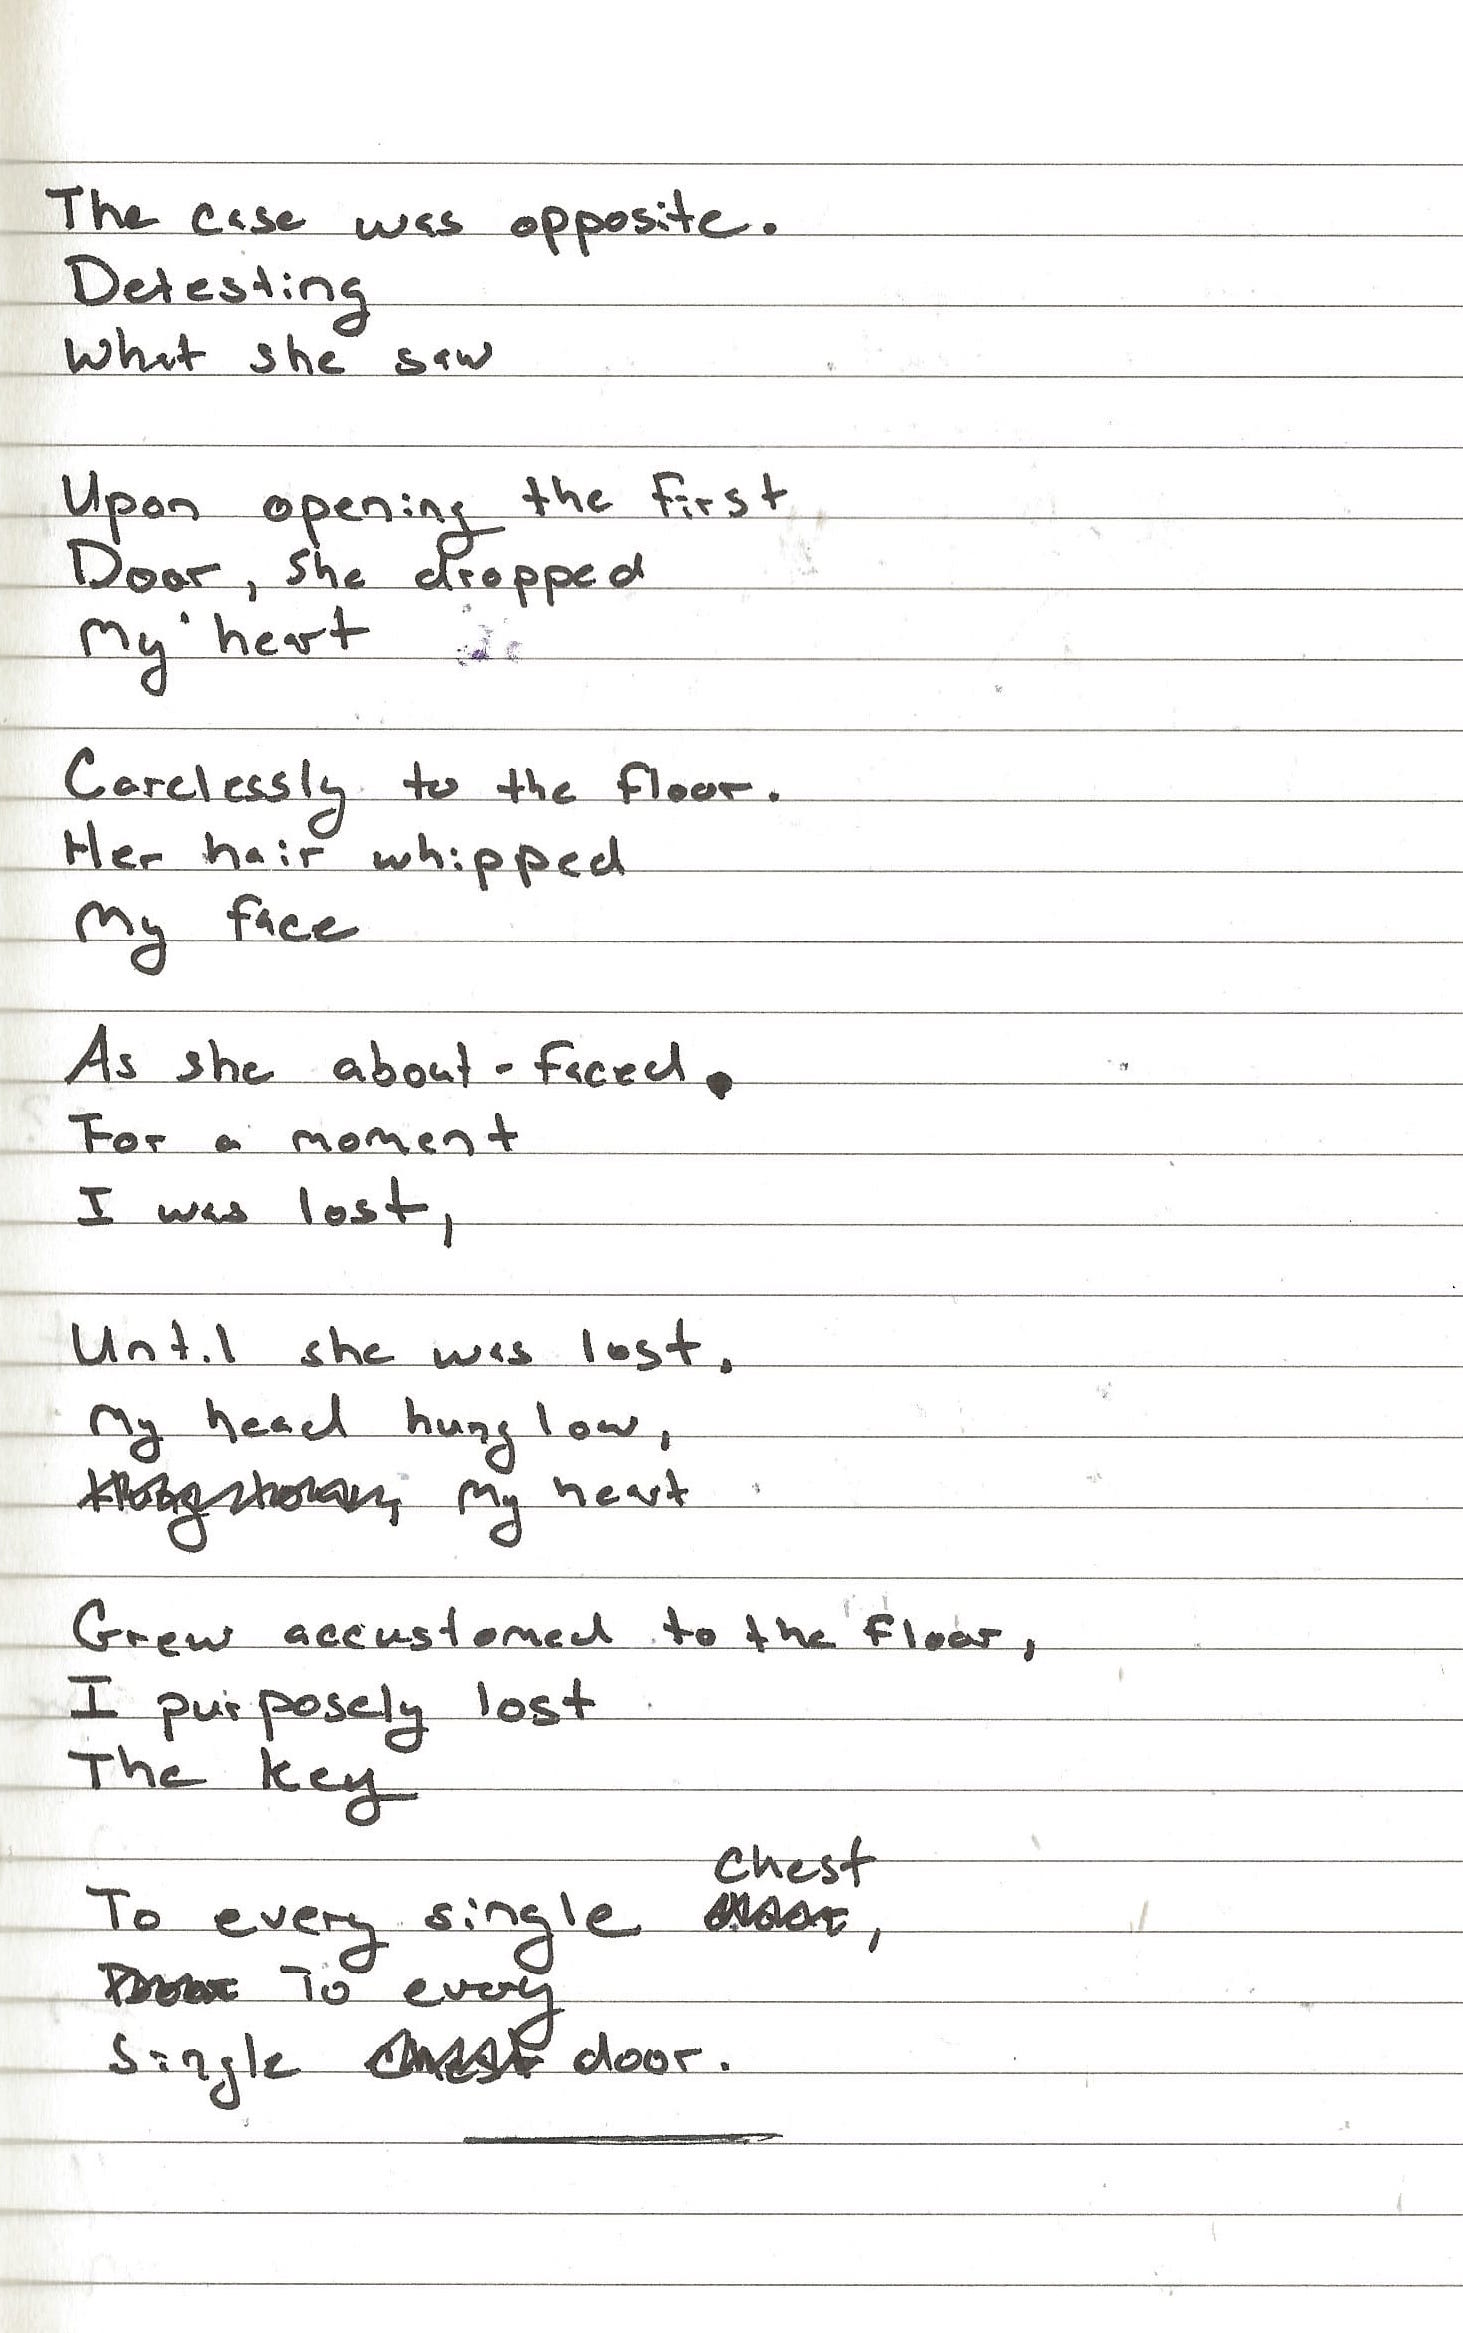 The case was opposite.
Detesting
What she saw
Upon opening the first
Door, she dropped
My heart
Carelessly to the floor.
Her hair whipped
My face
As she about-faced.
For a moment
I was lost,
Until she was lost.
My head hung low,
My heart
Grew accustomed to the floor,
I purposely lost
The key
chest
To every single ,
To every
Single door.